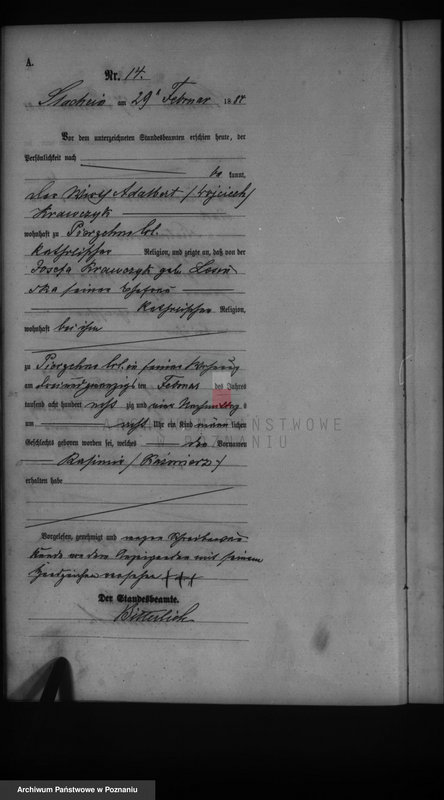 A.
Nr. 14.
am 29ª Februar 1888
Vor dem unterzeichneten Standesbeamten erschien heute, der
Persönlichkeit nach
be kannt,
der Wirth Adalbert /Wojciech/
Krawczyk
wohnhaft zu
katholischer Religion, und zeigte an, daß von der
Josefa Krawczyk geb.
ska seiner Ehefrau
katholischer Religion,
wohnhaft bei ihm
zu in seiner Wohnung
am drei und zwanzigsten Februar des Jahres
tausend acht hundert acht zig und Nachmittag s
um acht Uhr ein Kind männ lichen
Geschlechts geboren worden sei, welches Vornamen
Kasimir / Kazimierz /
erhalten habe
Vorgelesen, genehmigt und wegen Schreibens
von dem Anzeigenden mit seinem
Handzeichen versehen +++
Der Standesbeamte.
Bitterlich
ARCHIWUM PAŃSTWOWE
W POZNANIU
Archiwum Państwowe w Poznaniu